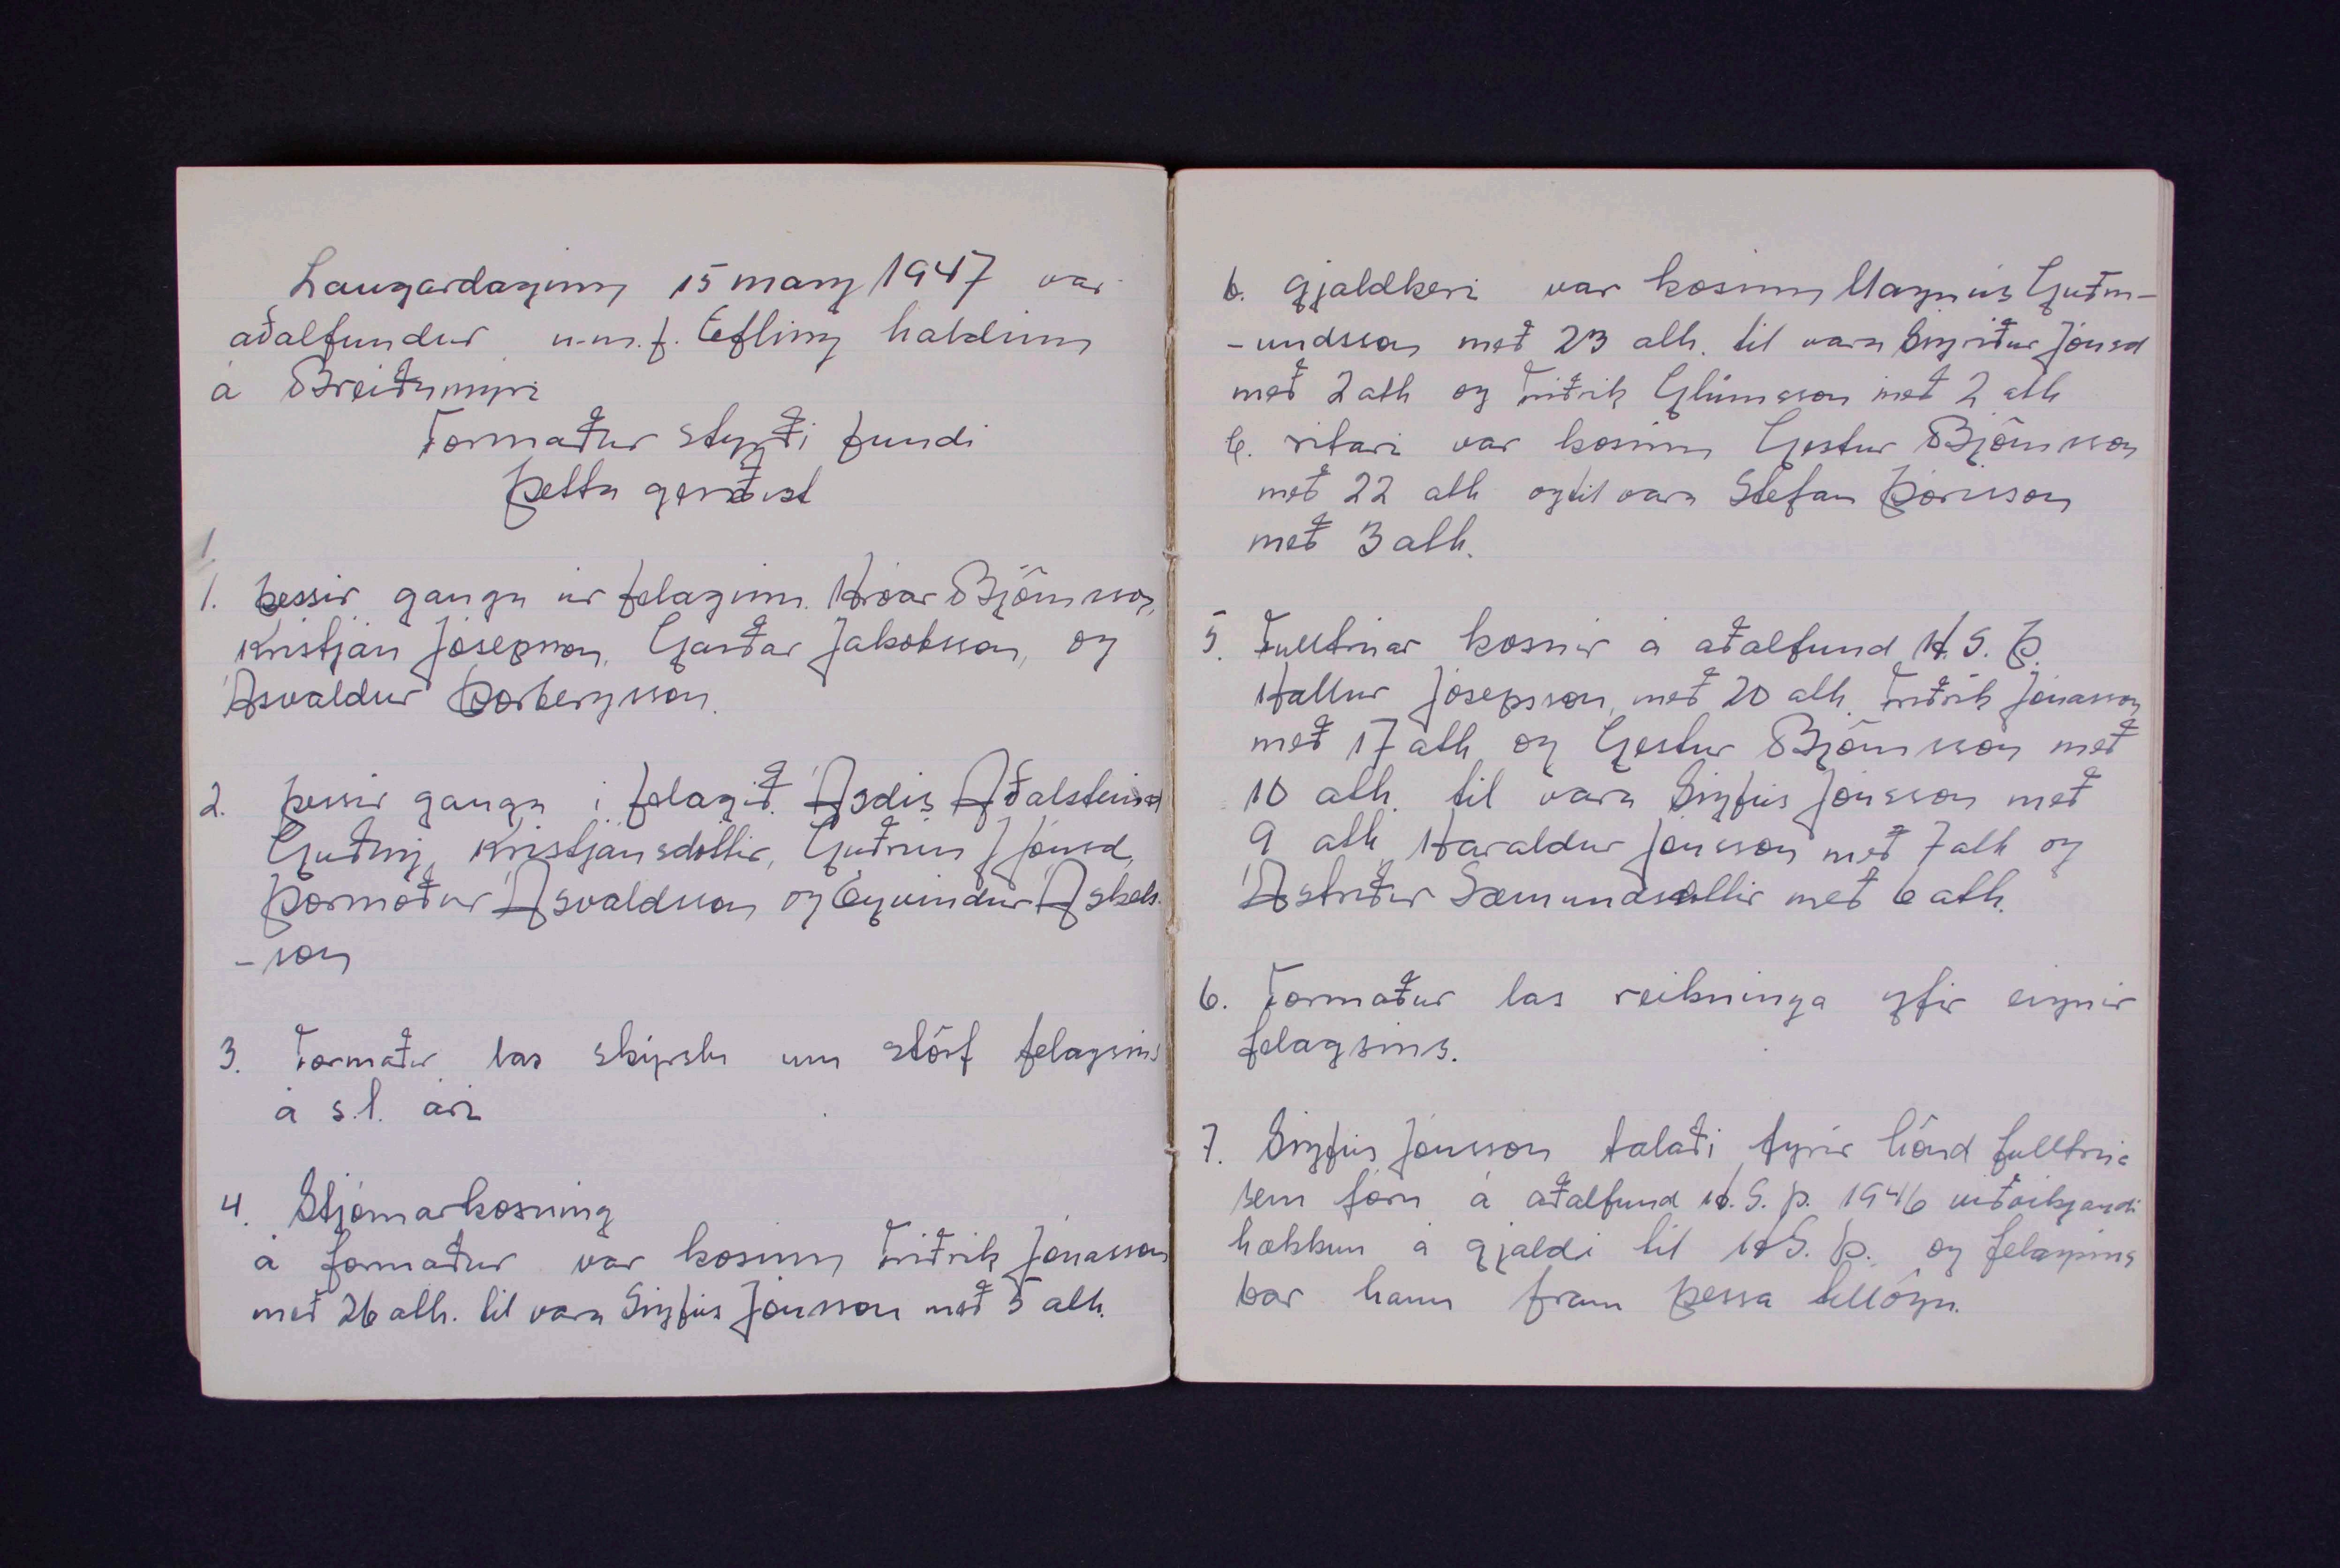 Laugardaginn 15 marz 1947 var
aðalfundur u.m.f. Efling haldinn
á Breiðumýri
Formaður stýrði fundi
Þetta gerðist
1.
1. Þessir ganga úr félaginu. Hróar Björnsson,
Kristján Jósepsson, Garðar Jakobsson, og
Ásvaldur Þorbergsson.
2. Þessir ganga í félagið. Ásdís Aðalsteinsd
Guðný Kristjánsdóttir, Guðrún J Jónsd,
Þormóður Ásvaldsson og Eyvindur Áskels-
-son
3. Formaður las skýrslu um störf félagsins
á s.l. ári
4. Stjórnarkosning
a formaður var kosinn Friðrik Jónasson
með 26 atk. til vara Sigfús Jónsson með 5 atk.
b. gjaldkeri var kosinn Magnús Guðm-
-undsson með 23 atk. til vara Sigríður Jónsd
með 2 atk og Friðrik Glúmsson með 2 atk
C. ritari var kosinn Gestur Björnsson
með 22 atk og til vara Stefán Þórisson
með 3 atk.
5. Fulltrúar kosnir á aðalfund H.S.Þ.
Hallur Jósepsson, með 20 atk. Friðrik Jónasson
með 17 atk og Gestur Björnsson með
10 atk. til vara Sigfús Jónsson með
9 atk Haraldur Jónsson með 7 atk og
Ástríður Sæmundsdóttir með 6 atk.
6. Formaður las reikninga yfir eignir
félagsins.
7. Sigfús Jónsson talaði fyrir hönd fulltrúa
sem fóru á aðalfund H.S.Þ. 1946 viðvíkjandi
hækkun á gjaldi til H.S.Þ. og félagsins
bar hann fram þessa tillögu.